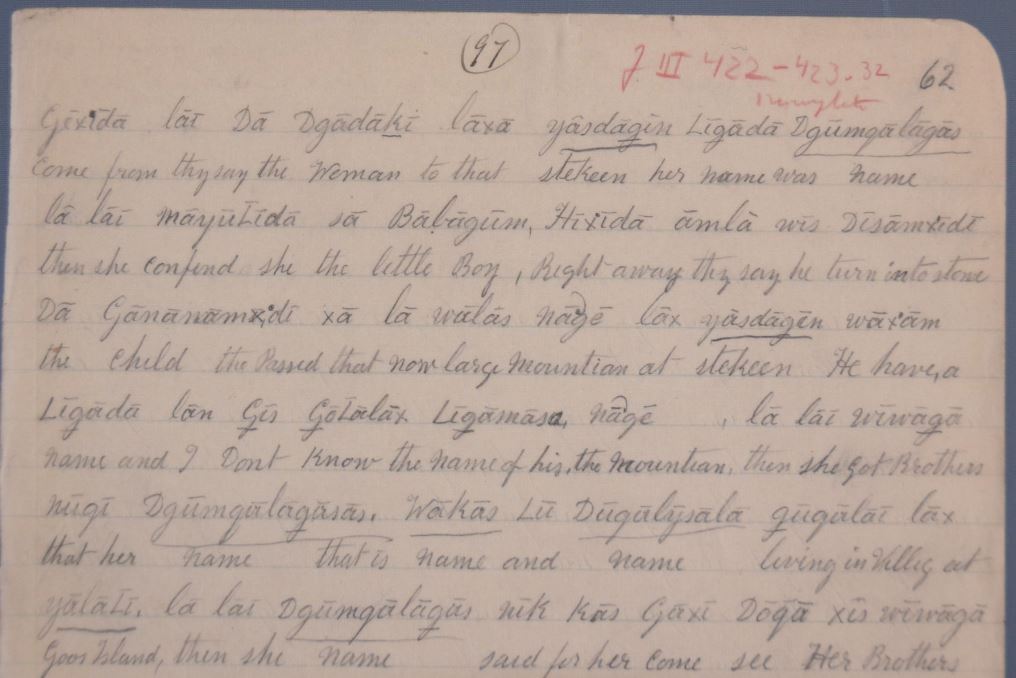 97
J III 422-423.32
62
Gēxīdā lāī Dā Dgādāḵī lāxā yāsdāgīn Līgādā Dgūmgālāgās
Come from thy say the Woman to that stekeen her name was name
lā lāī māyūLīdā sā Bābāgūm, Hīxīdā āmlā wīs Dīsāmxīdī
then she confend she the little Boy, Right away thy say he turn into stone
Dā Gānānāmxīdī xā lā wālās nāgē lāx yāsdāgēn wāxām
the Child the Passed that now large Mountian at stekeen He have, a
Līgādā lān Gīs GōLālāx Līgāmāsa, nāgē , lā lāī wīwāgā
name and I Dont Know the name of his, the Mountian. then she got Brothers
nūgī Dgūmgālāgāsās. Wākās Lū Dūgālȳsālā gūgālāī lāx
that her name that is name and name living in Villig at
yālāLī. lā lāī Dgūmgālāgās nīk Kās Gāxī Dōgā xīs wīwāgā
Goos Island, then she name said for her come see Her Brothers